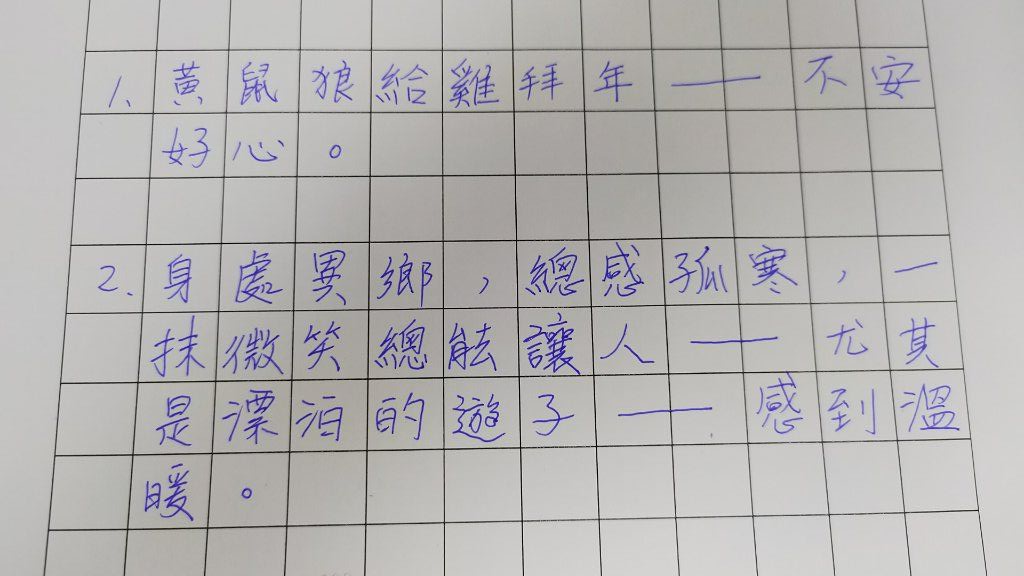 1、黃鼠狼給雞拜年——不安
好心。
2.身處異鄉，總感孤寒，一
抹微笑總能讓人——尤其
是漂泊的遊子——感到溫
暖。